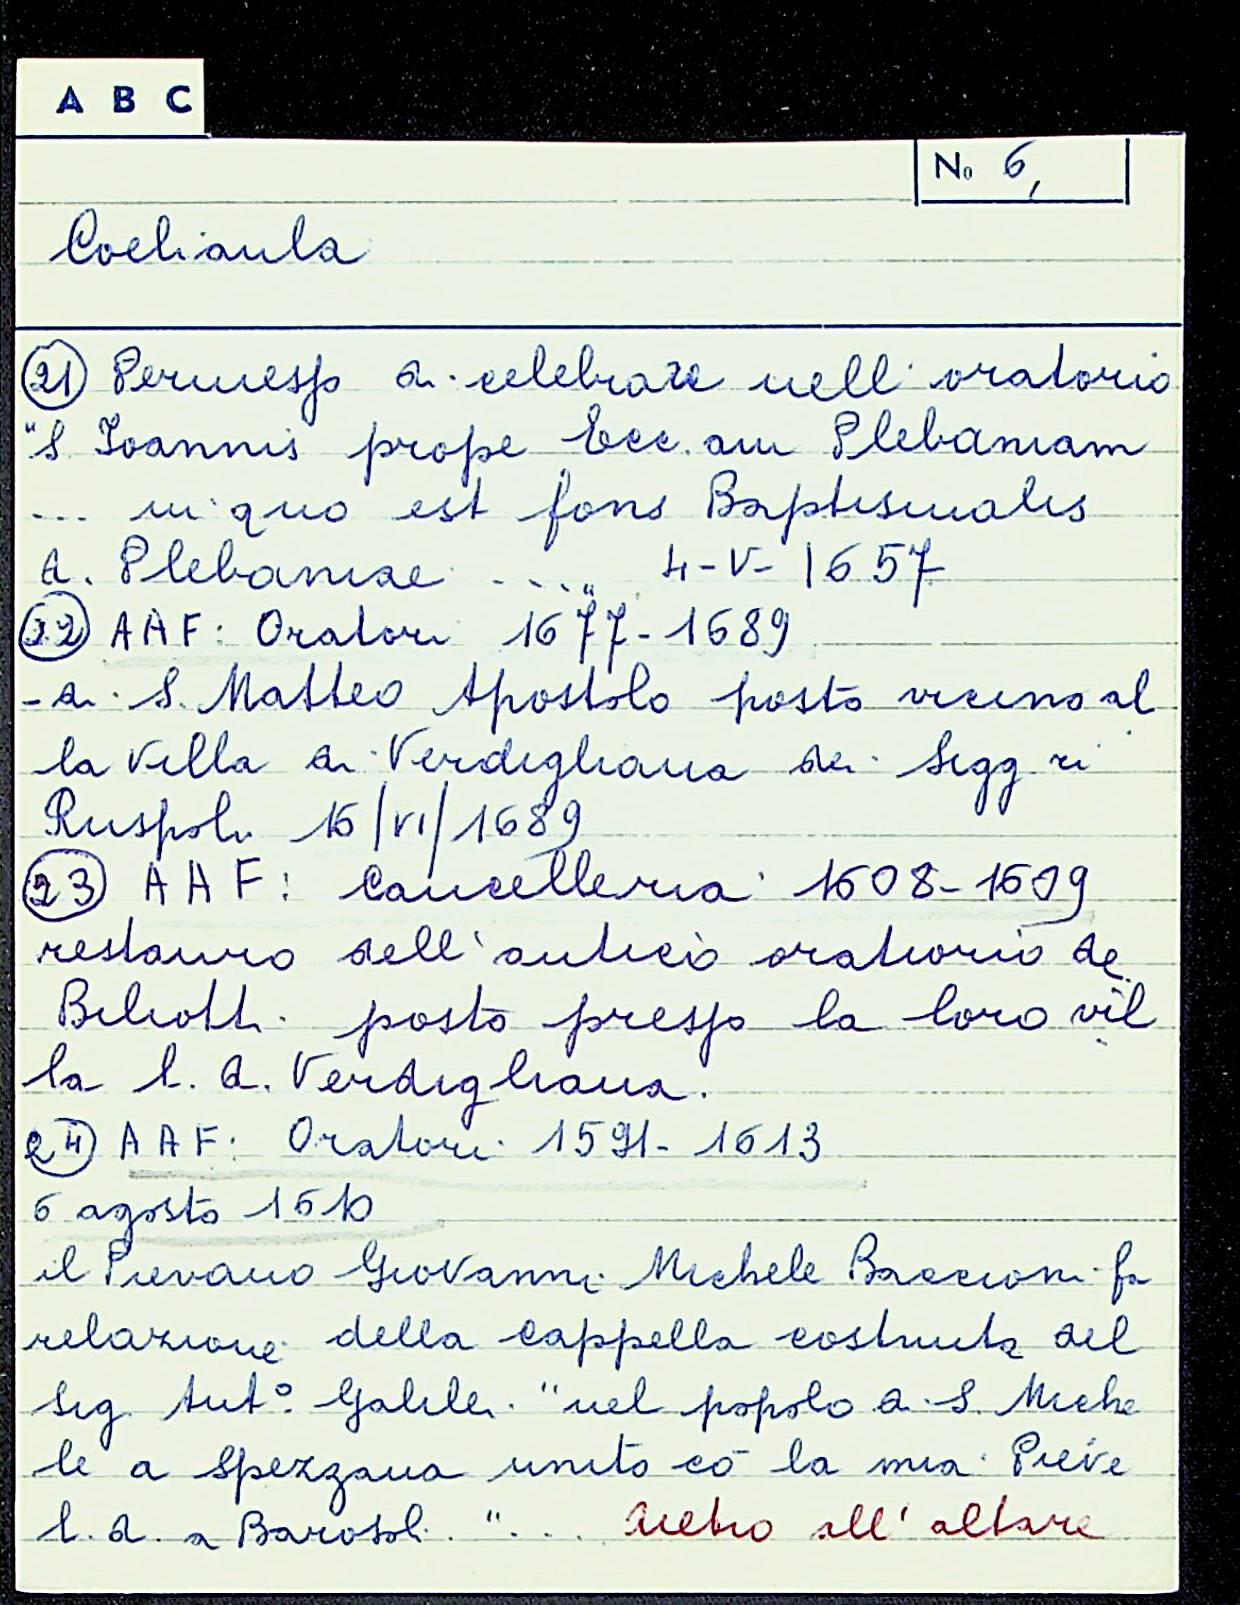 A B C
No 6,
Coeliaula
21 Permesso di celebrare nell'oratorio
"S. Ioannis prope Ecc.am Plebaniam
... in quo est fons Baptismalis
d. Plebaniae ...." 4-V-1657
22 AAF: Oratori 1677-1689
- di S. Matteo Apostolo posto vicino al
la villa di Verdigliana dei Sigg.ri
Ruspoli 16/VI/1689
23 AAF: Cancelleria 1608-1609
restauro dell'antico oratiorio de
Biliotti posto presso la loro vil
la l. d. Verdigliana.
24 AAF: Oratori 1591-1613
6 agosto 1610
il Pievano Giovanni Michele Baccioni fa
relazione della cappella costruita del
Sig. Ant.o Galilei "nel popolo di S. Miche
le a Spezzana unito cō la mia Pieve
l. d. a Barosoli" ... dietro all'altare